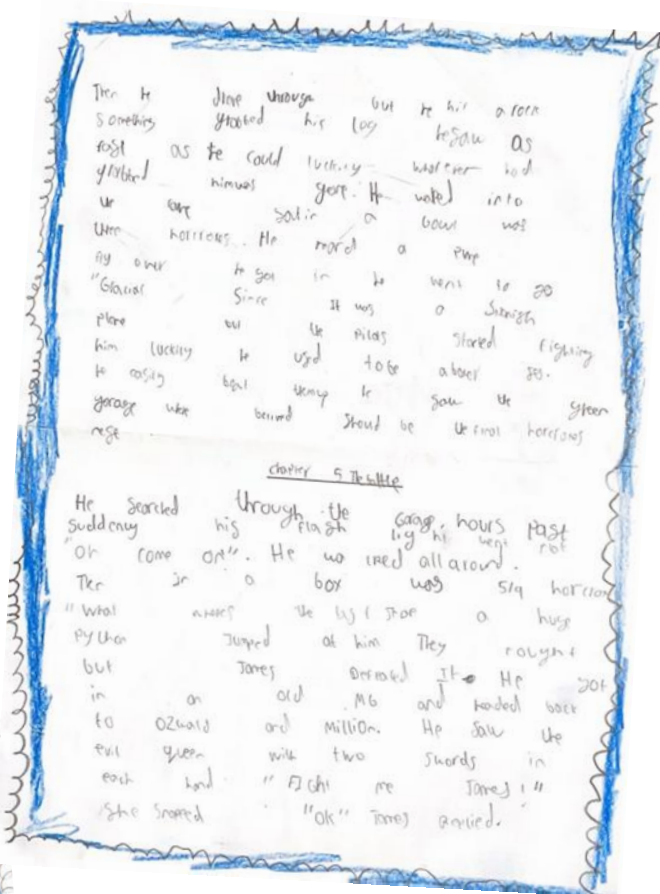 Then he dive through but he hit a rock
Something grabbed his leg he saw as
fast as he could luckily whatever had
grabbed him was gone. He walked into
the cave Sat in a bowl was
three horcroxs. He
fly over he got in he went to go
"Glacial Since It was a Spanish
plane but the Pilots Started Fighting
him luckily he used to be a boxer so.
he easily beat them up he saw the green
garage were behind Should be the final horcroxs
rest
chapter 5 The battle
He Searched through the Garage. hours Past
Suddenly his flash light went riot
"oh come on". He looked all around.
Then In a box was horcrox
"What the a huge
Python Jumped at him They fought
but James Defeated It. He got
in an old MG and headed back
to Ozwald and Million. He Saw the
evil queen with two Swords in
each hand "Fight me James!"
She Snapped "Ok" James replied.